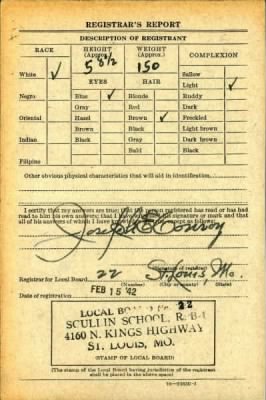 REGISTRAR'S REPORT
DESCRIPTION OF REGISTRANT
RACE
HEIGHT (Approx.)
WEIGHT (Approx.)
COMPLEXION
White ✓
5 8½
150
Sallow
EYES
HAIR
Light ✓
Negro
Blue ✓
Blonde
Ruddy
Gray
Red
Dark
Oriental
Hazel
Brown ✓
Freckled
Brown
Black
Light brown
Indian
Black
Gray
Dark brown
Bald
Black
Filipino
Other obvious physical characteristics that will aid in identification
I certify that my answers are true; that the person registered has read or has had
read to him his own answers; that I have witnessed his signature or mark and that
all of his answers of which I have knowledge
Joseph E Conroy
(Signature of registrar)
Registrar for Local Board 22 St. Louis, Mo.
(Number) (City or county) (State)
Date of registration FEB 15 '42
LOCAL BOARD No. 22
SCULLIN SCHOOL, R. B-1
4160 N. KINGS HIGHWAY
ST. LOUIS, MO.
(STAMP OF LOCAL BOARD)
(The stamp of the Local Board having jurisdiction of the registrant
shall be placed in the above space)